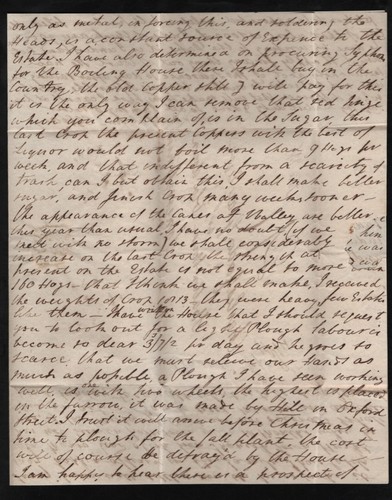 only as metal, in forcing this, and soldering the
Heads, is a constant source of Expence to the
Estate. I have also determined on procuring Syphons
for the Boiling House these I shall buy in the
Country, the old Copper stills I will pay for this
it is the only way I can remove that red tinge
which you complain of, is in the Sugar, this
last Crop the present Coppers with the best of
liquor would not boil more than 9 Hgs pr
week, and that indifferent from a scarcity of
trash can I but obtain this, I shall make better
sugar, and finish Crop many weeks sooner —
The appearance of the Canes at Valley are better
this year than usual, I have no doubt if we
meet with no storm we shall considerably
increase on the last Crop the strength at
present on the Estate is not equal to more
160 Hogs - that I think we shall make, I received
the weights of Crop they were heavy few Estates
like them — I have wrote the House that I should request
you to look out for a light Plough labour is
become so dear 3/7½ pr day and negroes so
scarce that we must relieve our Hands as
much as possible, a Plough I have seen working
well, is with two wheels, the highest is placed
in the furrow, it was made by Hill in Oxford
Street, I trust it will arrive before Christmas in
time to plough for the fall plant, the cost
will of course be defray'd by the House —
I am happy to hear there is a prospect of
him
was